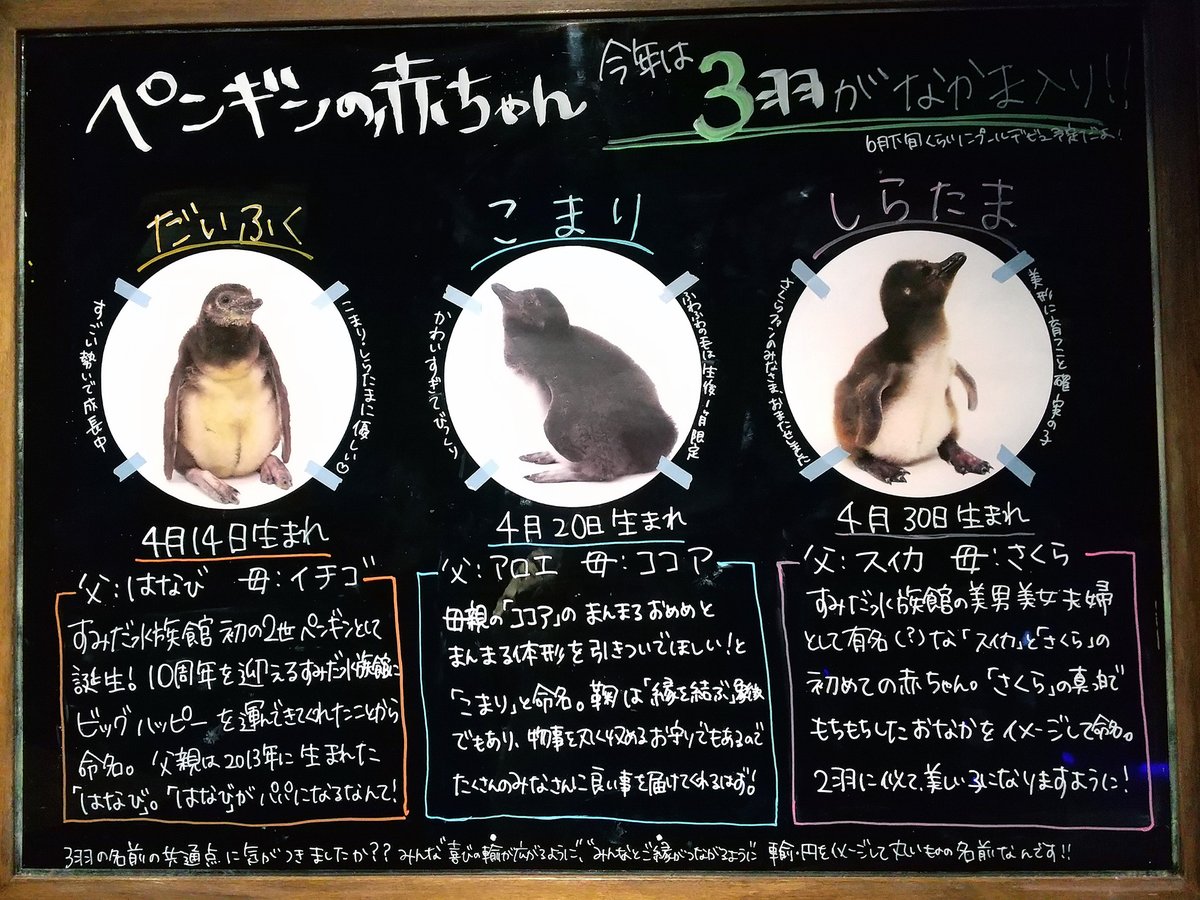 ペンギンの赤ちゃん 今年は3羽がなかま入り!!
6月下旬くらいにプールデビュー予定だよ!
だいふく
すごい勢いで成長中
こまり、しらたまに優しい♡
4月14日生まれ
父:はなび 母:イチゴ
すみだ水族館初の2世ペンギンとして
誕生!10周年を迎えるすみだ水族館に
ビッグハッピーを運んできてくれたことから
命名。父親は2013年に生まれた
「はなび」。「はなび」がパパになるなんて!
こまり
かわいすぎてびっくり
ふわふわの毛は生後1ヶ月限定
4月20日生まれ
父:アロエ 母:ココア
母親の「ココア」のまんまるおめめと
まんまる体形を引きついでほしい!と
「こまり」と命名。鞠は「縁を結ぶ」
でもあり、物事を丸く収めるお守りでもあるので
たくさんのみなさんに良い事を届けてくれるはず!
しらたま
さくらファンのみなさま、おまたせしました
美形に育つこと確実の子
4月30日生まれ
父:スイカ 母:さくら
すみだ水族館の美男美女夫婦
として有名(?)な「スイカ」と「さくら」の
初めての赤ちゃん。「さくら」の真っ白で
もちもちしたおなかをイメージして命名。
2羽に似て、美しい子になりますように!
3羽の名前の共通点に気がつきましたか??みんな"喜びの輪が広がるように"、"みんなとご縁がつながるように" 輪・円をイメージして丸いものの名前なんです!!